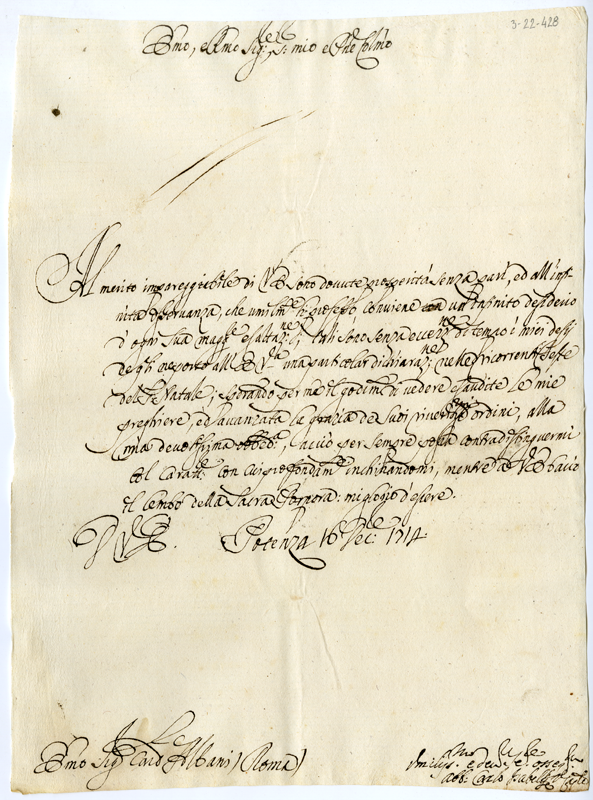 3-22-428
Emo, e Rmo Sig.re S: mio e Pne Colmo
Al merito impareggiabile di V E sono dovute prosperità senza pari, ed all'infi-
nita osservanza, che umilm.te professo, conviene un infinito desiderio
d'ogni sua magg.re esaltaz.ne; Tali sono senza di tempo i miei desi
degli ne porto all' E V una particolar dichiaraz.ne nelle ricorrenti feste
del S Natale; sperando per me il godim.to di vedere esaudite le mie
preghiere, ed avanzata la grazia de suoi riveritmi ordini, alla
mia devotissima obbed:, acciò per sempre possa contradistinguermi
col caratt.e con cui profondam.te inchinandomi, mentre a V E bacio
il lembo della Sacra Porpora: mi glorio d'essere.
D V E. Potenza 16 Dec.e 1714
Emo Sig.r Card Albani (Roma)
Umiliss. e dev. se. osseq
Abb. Carlo